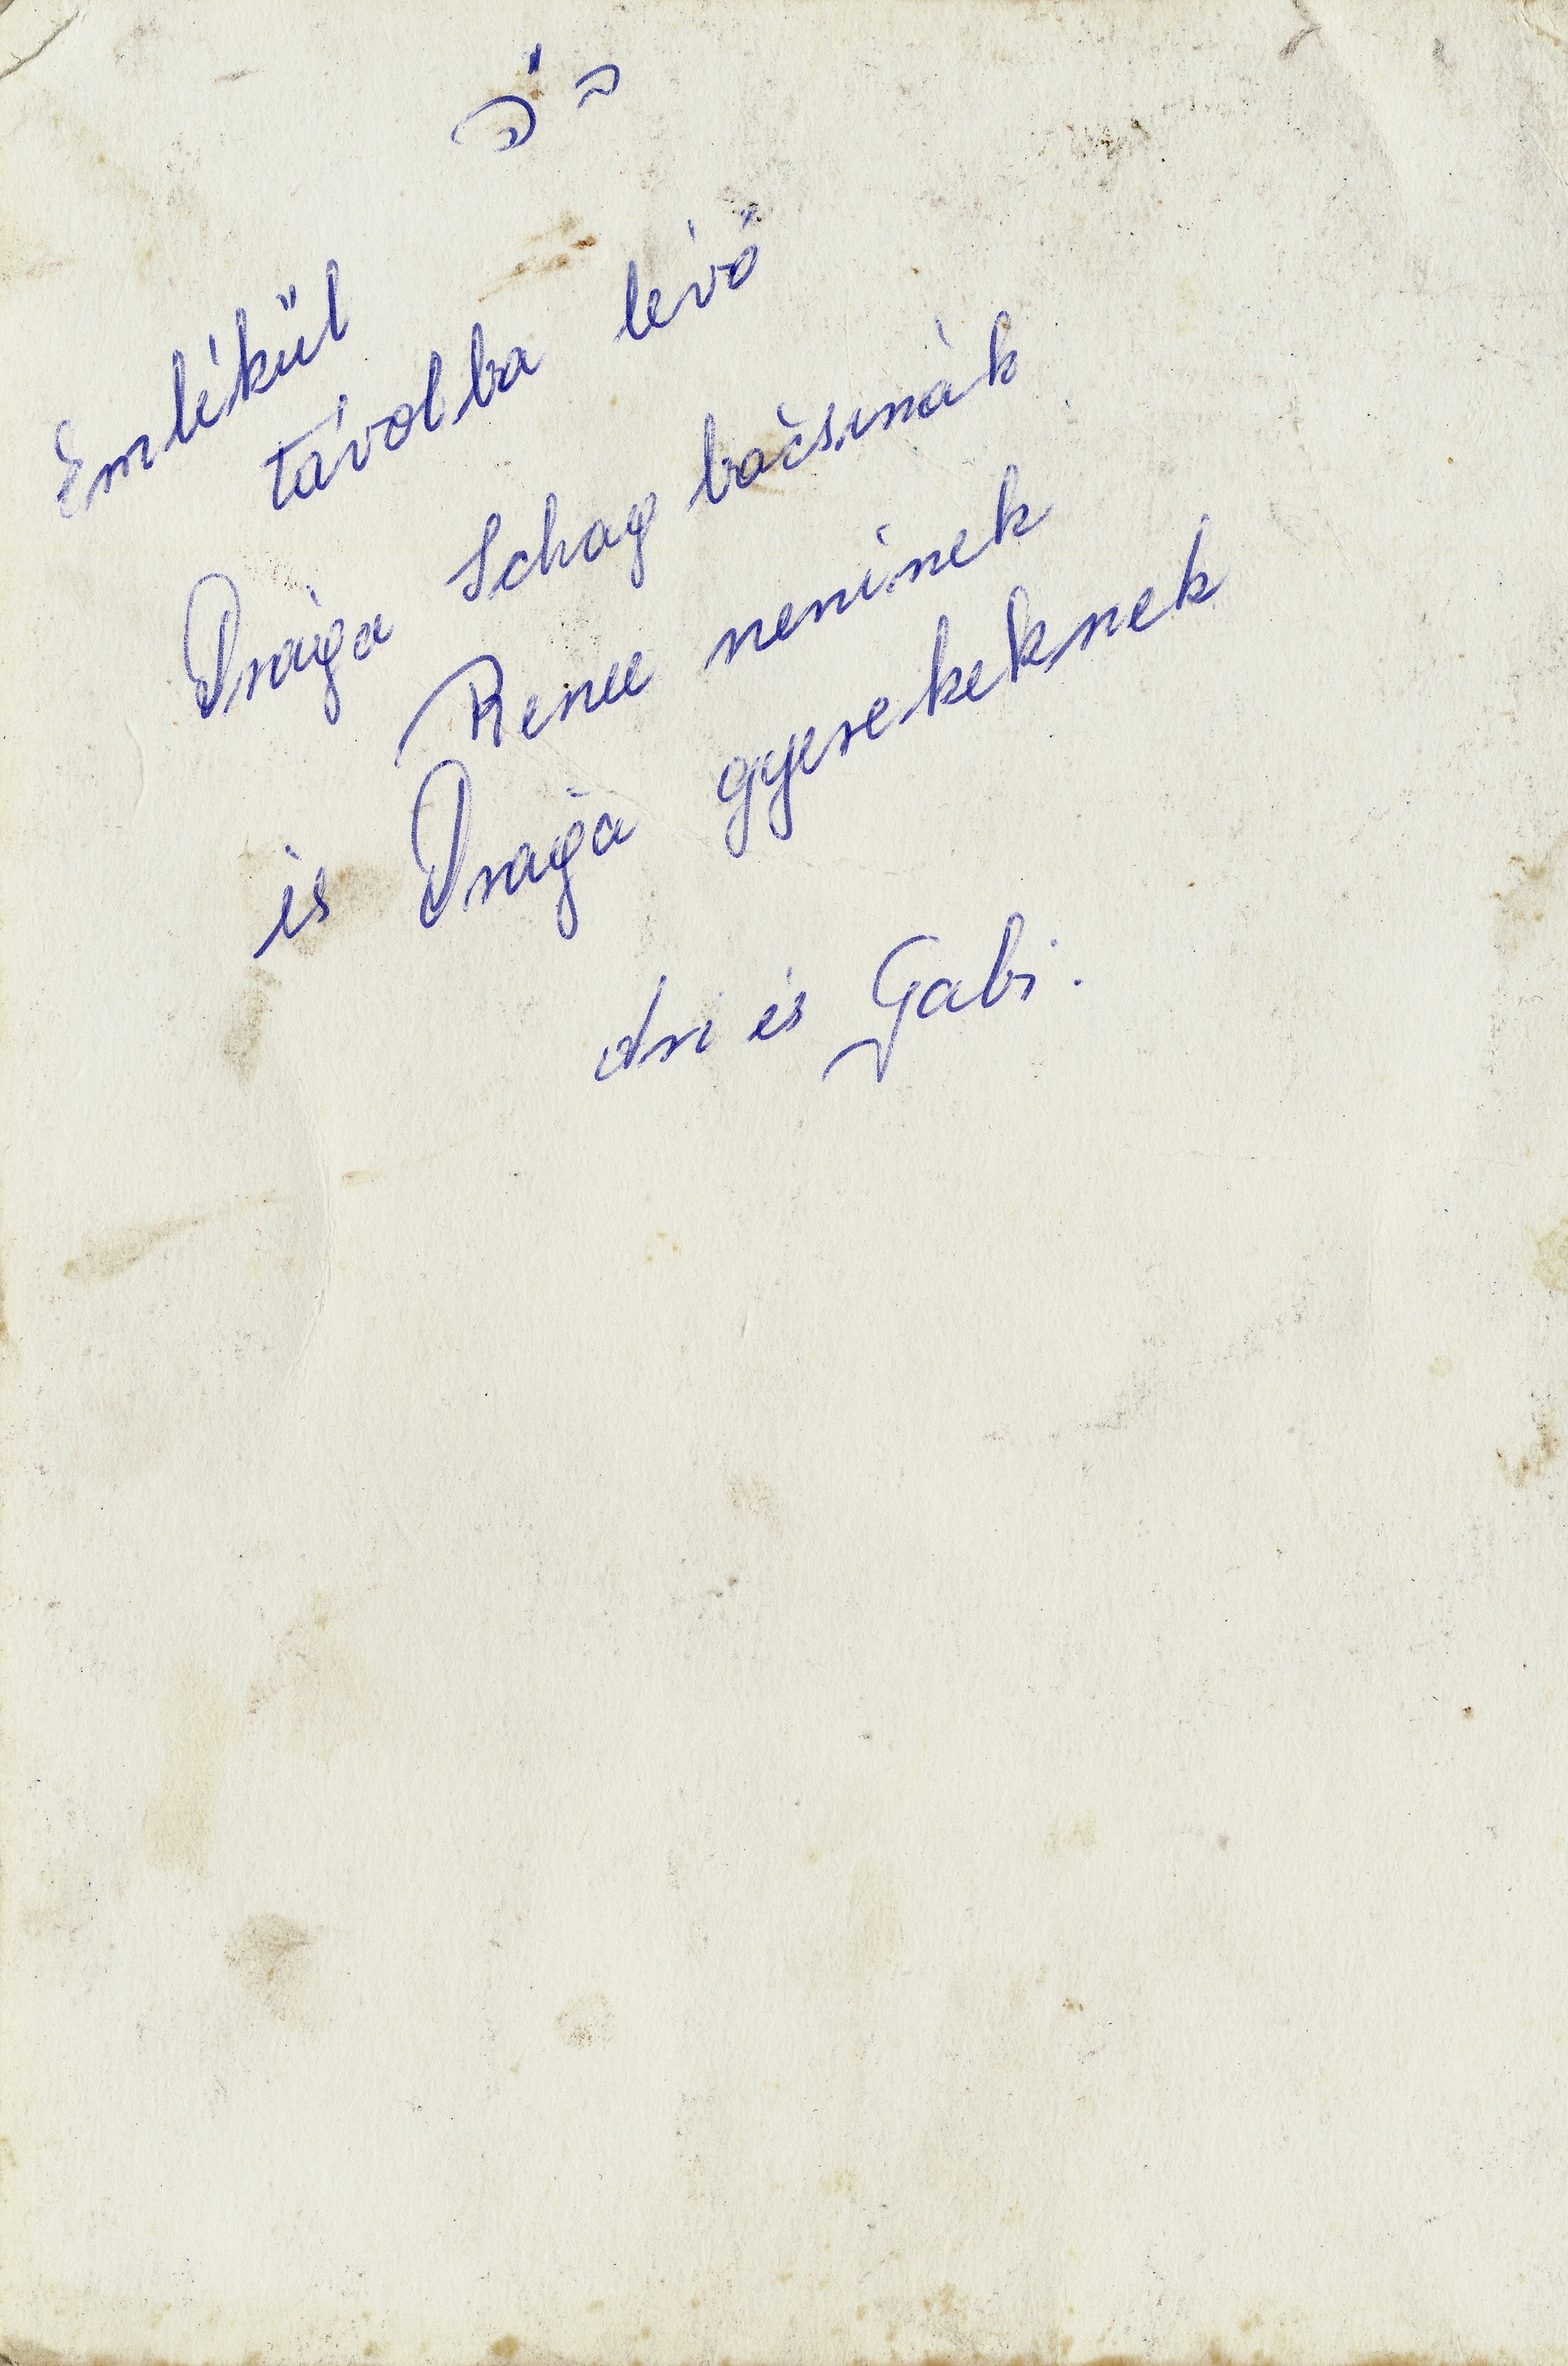 ב"ה
Emlékül
távolba lévő
Drága Schag bácsinák
Renee neninek
és Drága gyerekeknek
Ari és Gabi.